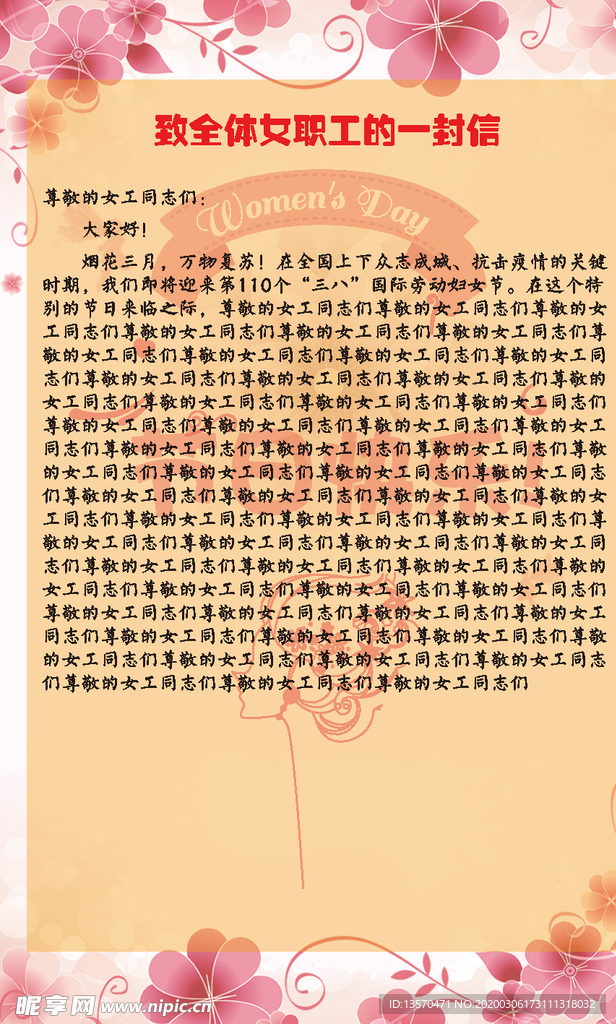 致全体女职工的一封信
Women's Day
尊敬的女工同志们：
大家好！
烟花三月，万物复苏！在全国上下众志成城、抗击疫情的关键
时期，我们即将迎来第110个“三八”国际劳动妇女节。在这个特
别的节日来临之际，尊敬的女工同志们尊敬的女工同志们尊敬的女
工同志们尊敬的女工同志们尊敬的女工同志们尊敬的女工同志们尊
敬的女工同志们尊敬的女工同志们尊敬的女工同志们尊敬的女工同
志们尊敬的女工同志们尊敬的女工同志们尊敬的女工同志们尊敬的
女工同志们尊敬的女工同志们尊敬的女工同志们尊敬的女工同志们
尊敬的女工同志们尊敬的女工同志们尊敬的女工同志们尊敬的女工
同志们尊敬的女工同志们尊敬的女工同志们尊敬的女工同志们尊敬
的女工同志们尊敬的女工同志们尊敬的女工同志们尊敬的女工同志
们尊敬的女工同志们尊敬的女工同志们尊敬的女工同志们尊敬的女
工同志们尊敬的女工同志们尊敬的女工同志们尊敬的女工同志们尊
敬的女工同志们尊敬的女工同志们尊敬的女工同志们尊敬的女工同
志们尊敬的女工同志们尊敬的女工同志们尊敬的女工同志们尊敬的
女工同志们尊敬的女工同志们尊敬的女工同志们尊敬的女工同志们
尊敬的女工同志们尊敬的女工同志们尊敬的女工同志们尊敬的女工
同志们尊敬的女工同志们尊敬的女工同志们尊敬的女工同志们尊敬
的女工同志们尊敬的女工同志们尊敬的女工同志们尊敬的女工同志
们尊敬的女工同志们尊敬的女工同志们尊敬的女工同志们
节日快乐！
昵享网 www.nipic.cn
ID:13570471 NO:20200306173111318032